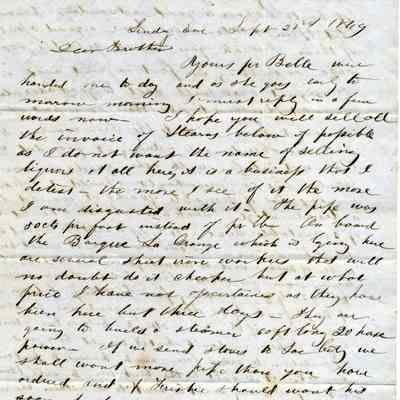 Sunday Eve Sept 23d 1849
Dear Brother
Yours pr Belle were
handed me to day and as she goes early to
morrow morning I must reply in a few
words now — I hope you will sell all
the invoice of Stearns below if possible
as I do not want the name of selling
liquors at all here, it is a business that I
detest — the more I see of it the more
I am disgusted with it — The pipe was
80cts pr foot instead of pr lb. On board
the Barque La Grange which is lying here
are several sheet iron workers that will
no doubt do it cheaper but at what
price I have not ascertained as they have
been here but three days — They are
going to build a steamer 20 horse
power — If we send stoves to Sac City we
shall want more pipe than you have
ordered and if should want his